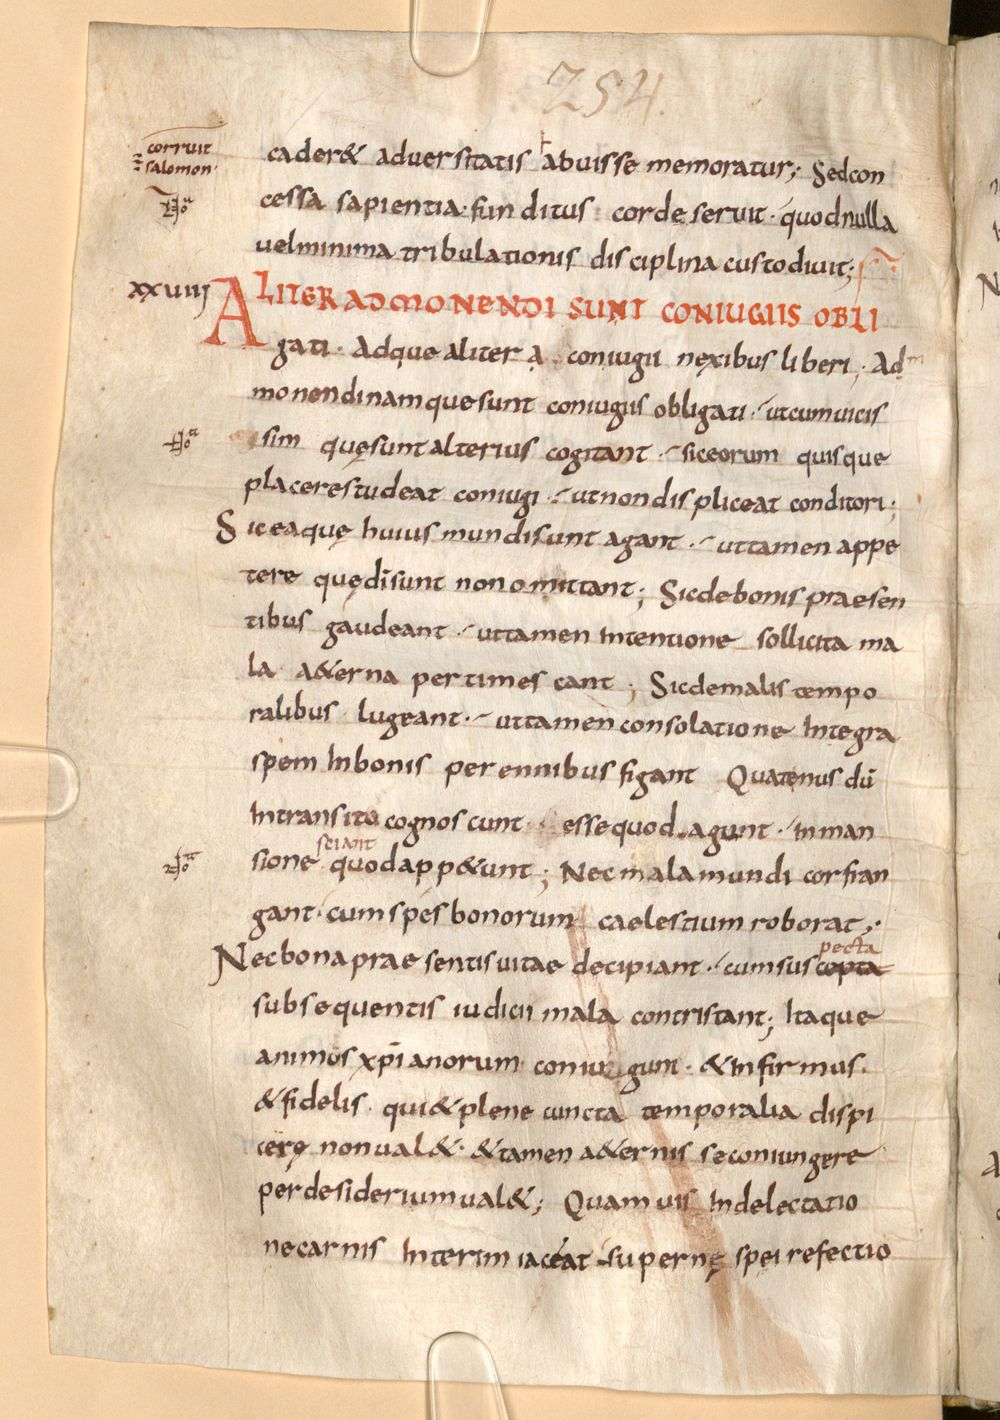 254.
corruit
salomon·
cader& adversitatis abuisse memoratur; Sedcon
cessa sapientia· funditus corde seruit· quodnulla
uelminima tribulationis disciplina custodiuit;
xxviiij
ALITER ADMONENDI SUNT CONIUGIIS OBLI
gati· Adque aliter a coniugii nexibus liberi; Ad
monendinamquesunt coniugiis obligati· utcumuicis
sim quęsuntalterius cogitant· siceorum quisque
placerestudeat coniugi· utnondispliceat conditori;
Siceaquę huius mundisunt agant· uttamen appe
tere quędīsunt nonomittant; Sicdebonis praesen
tibus gaudeant· uttamen intentione sollicita ma
la a&erna pertimescant; Sicdemalis tempo
ralibus lugeant· uttamen consolatione integra
spem inbonis perennibus figant Quatenus dū
intransitu cognoscunt essequod agunt· inman
sciant
sione quodapp&unt; Necmala mundi corfran
gant· cum spes bonorum caelestium roborat;
pecta
Necbona praesentis uitae decipiant· cumsuscopta
subsequentis iudicii mala contristant; Itaque
animus xp̄ianorum coniugum· &infirmus·
&fidelis· qui&plene cuncta temporalia dispi
cere nonual&· &tamen a&ernis seconiungere
perdesideriumual&; Quamuis indelectatio
necarnis interim iaceat supernę spei refectio